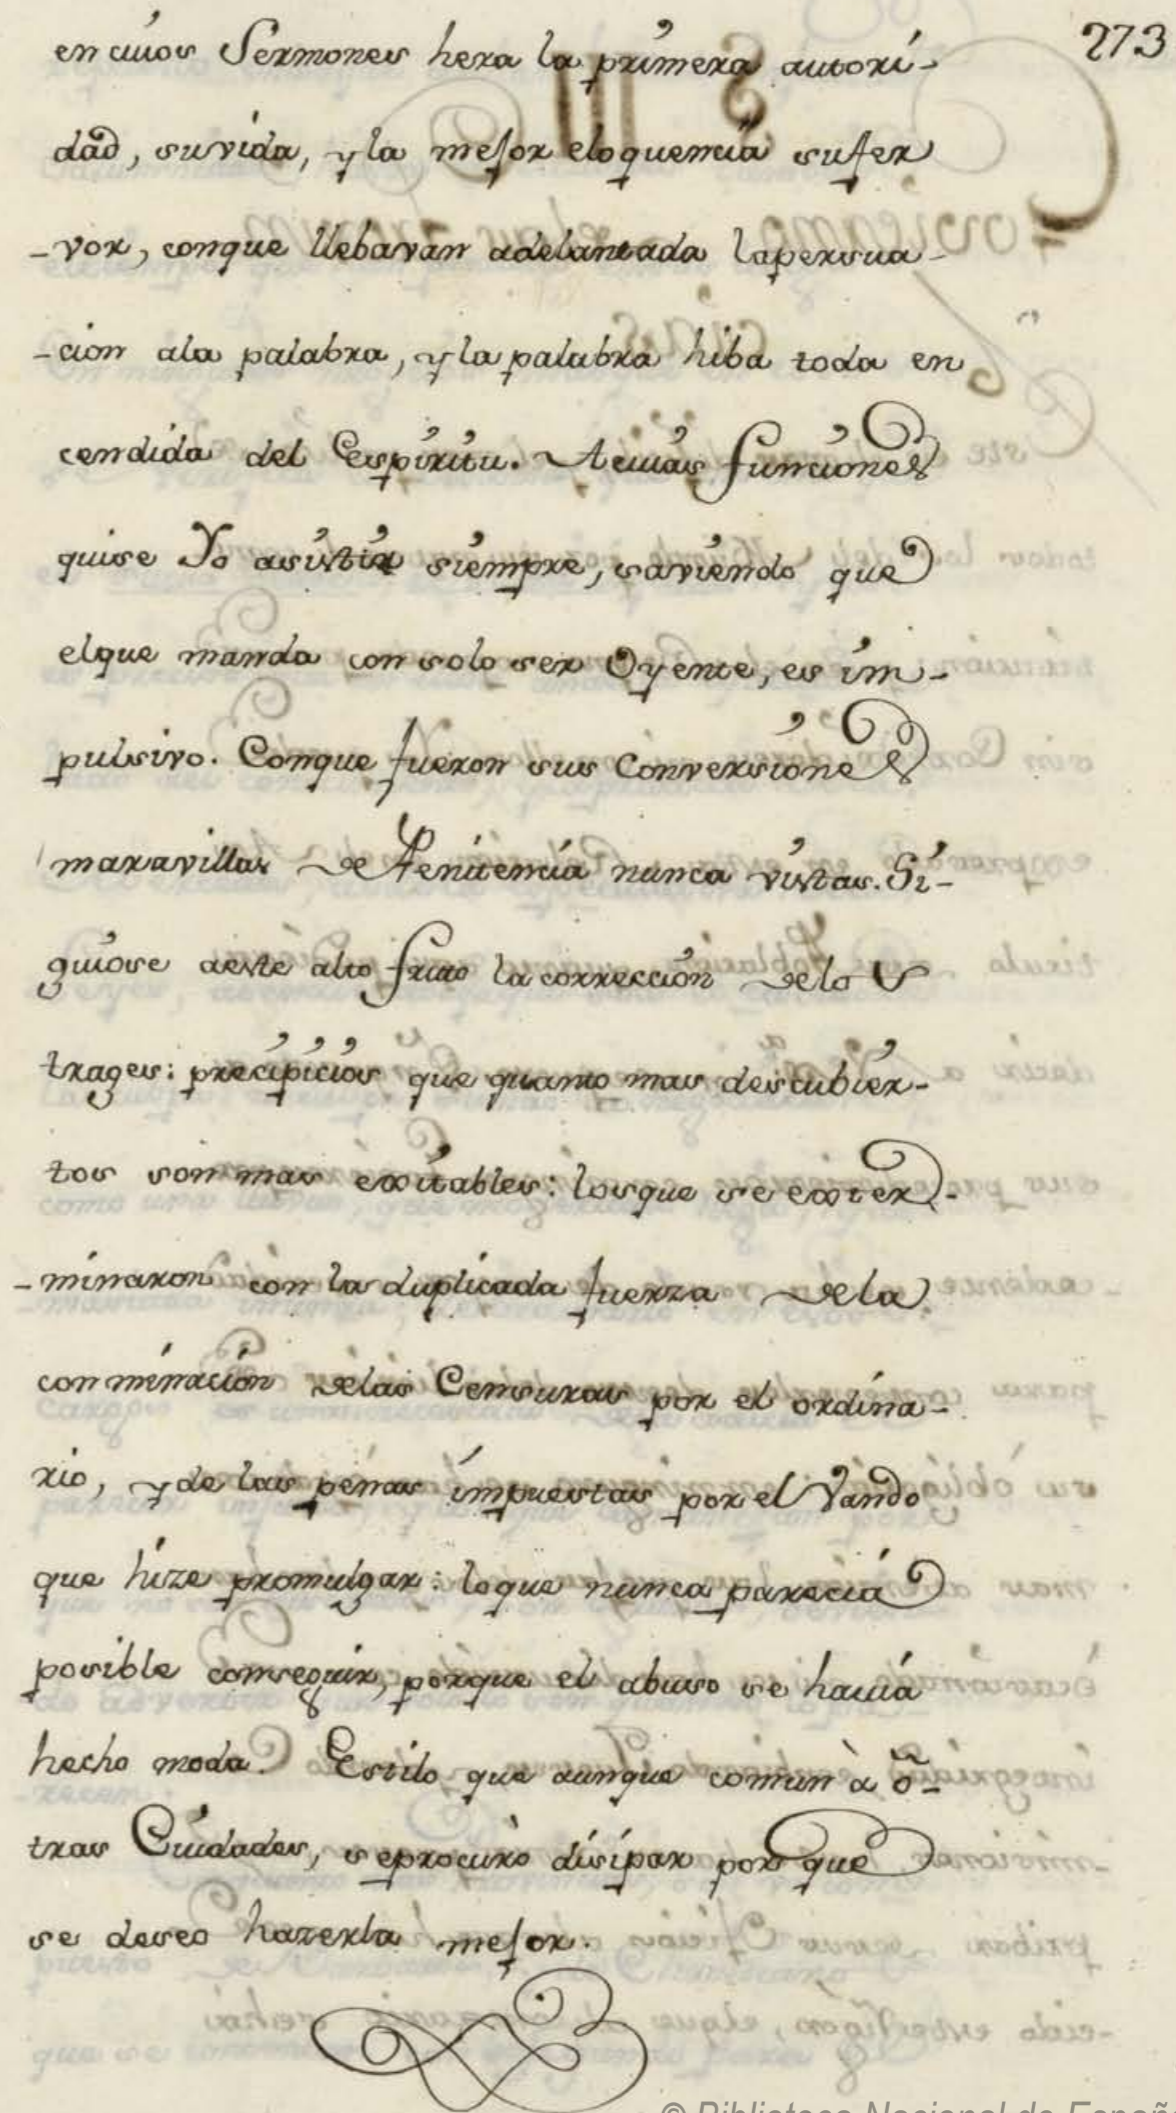 273
en cuios Sermones hera la primera autori-
dad, su vida, y la mejor eloquencia su fer
-vor, conque llebavan adelantada la persua-
-cion a la palabra, y la palabra hiba toda en
cendida del Espiritu. A cuias funciones
quise Yo asistir siempre, saviendo que
el que manda con solo ser Oyente, es im-
pulsivo. Conque fueron sus Conversiones
maravillas de Penitencia nunca vistas. Si-
guiose a este alto fruto la correccion de los
trages: precipicios que quanto mas descubier-
tos son mas exitables: los que se exter-
-minaron con la duplicada fuerza de la
conminacion de las Censuras por el ordina-
rio, y de las penas impuestas por el Vando
que hize promulgar: lo que nunca parecia
posible conseguir, porque el abuso se havia
hecho moda. Estilo que aunque comun à o-
tras Ciudades, se procurò disipar por que
se deseo hazerla mejor.
© Biblioteca Nacional de España